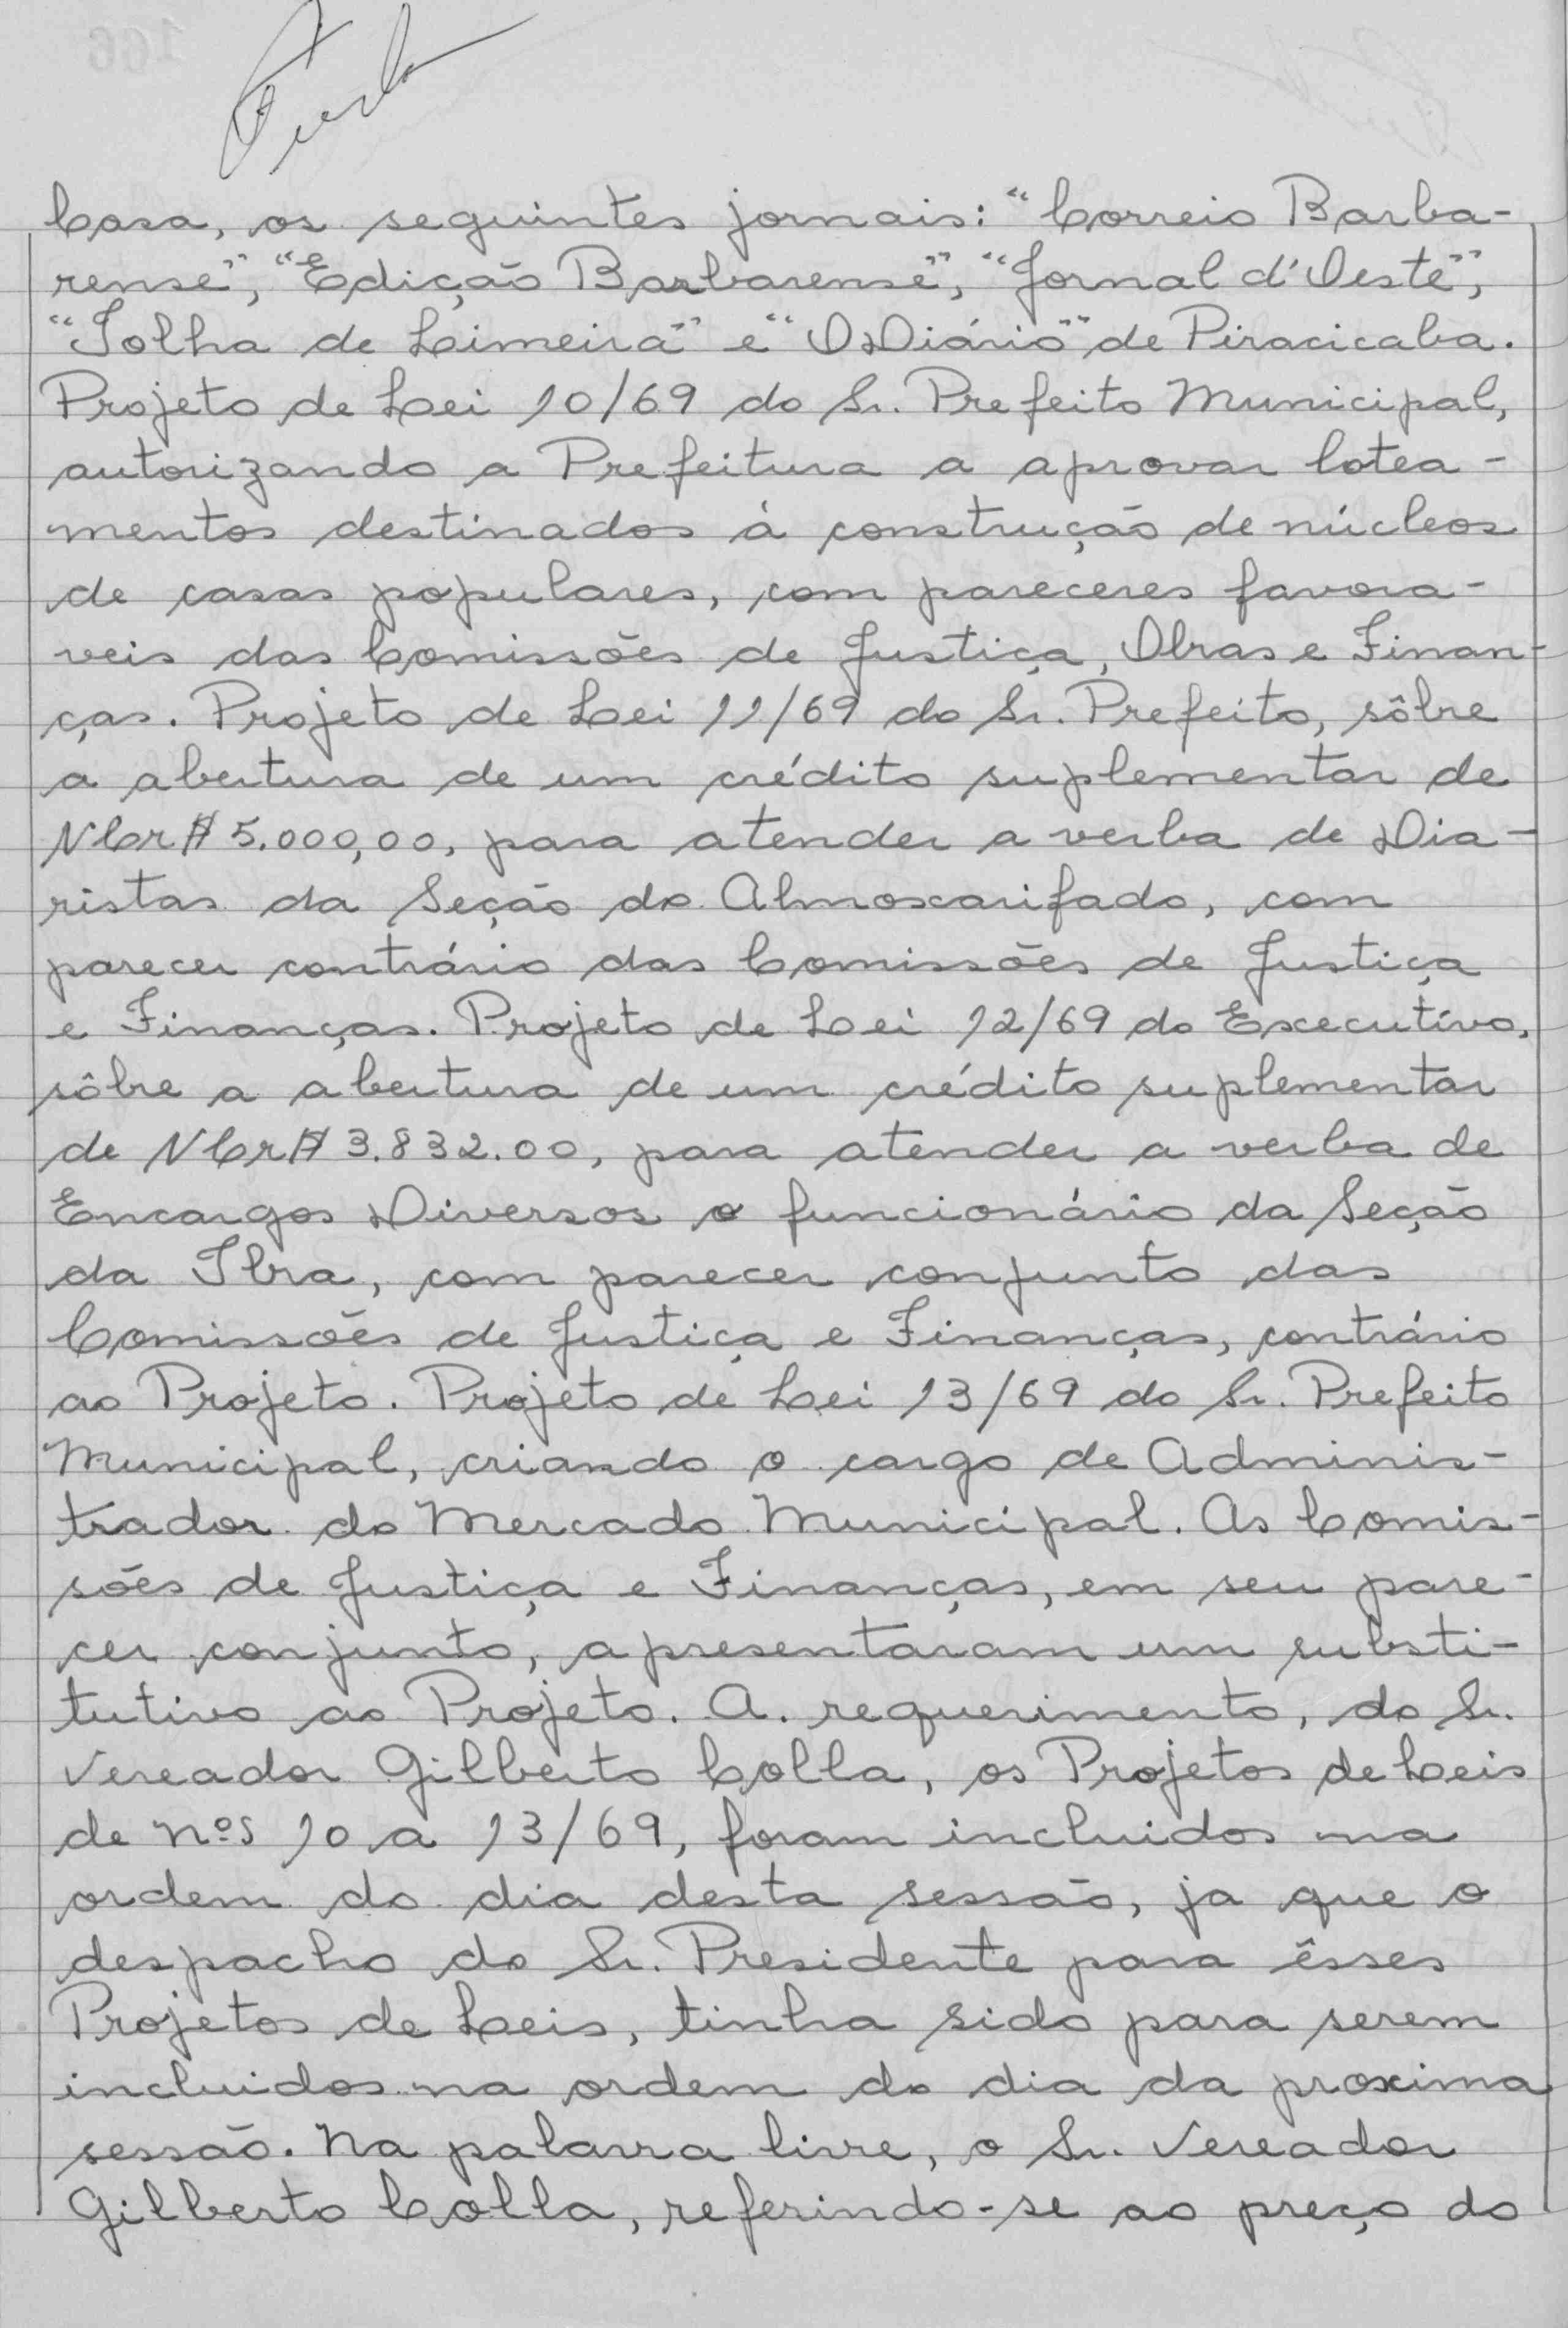 Casa, os seguintes jornais: "Correio Barba-
rense", "Edição Barbarense", "Jornal d'Oeste",
"Folha de Limeira" e "O Diário" de Piracicaba.
Projeto de Lei 10/69 do Sr. Prefeito Municipal,
autorizando a Prefeitura a aprovar lotea-
mentos destinados à construção de núcleos
de casas populares, com pareceres favora-
veis das Comissões de Justiça, Obras e Finan-
ças. Projeto de Lei 11/69 do Sr. Prefeito, sôbre
a abertura de um crédito suplementar de
NCr$ 5.000,00, para atender a verba de Dia-
ristas da Seção do Almoxarifado, com
parecer contrário das Comissões de Justiça
e Finanças. Projeto de Lei 12/69 do Executivo,
sôbre a abertura de um crédito suplementar
de NCr$ 3.832.00, para atender a verba de
Encargos Diversos o funcionário da Seção
da Ibra, com parecer conjunto das
Comissões de Justiça e Finanças, contrário
ao Projeto. Projeto de Lei 13/69 do Sr. Prefeito
Municipal, criando o cargo de Adminis-
trador do Mercado Municipal. As Comis-
sões de Justiça e Finanças, em seu pare-
cer conjunto, apresentaram um substi-
tutivo ao Projeto. A. requerimento, do Sr.
Vereador Gilberto Colla, os Projetos de Leis
de nºs 10 a 13/69, foram incluidos na
ordem do dia desta sessão, ja que o
despacho do Sr. Presidente para êsses
Projetos de Leis, tinha sido para serem
incluidos na ordem do dia da proxima
sessão. Na palavra livre, o Sr. Vereador
Gilberto Colla, referindo-se ao preço do